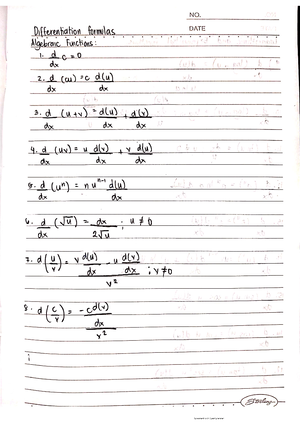 NO.
DATE
Differentiation formulas
Algebraic Functions:
1. d/dx c = 0
2. d/dx (cu) = c d(u)/dx
3. d/dx (u+v) = d(u)/dx + d(v)/dx
4. d/dx (uv) = u d(v)/dx + v d(u)/dx
5. d/dx (uⁿ) = n uⁿ⁻¹ d(u)/dx
6. d/dx (√u) = dx/2√u ; u ≠ 0
7. d(u/v) = v d(u)/dx - u d(v)/dx / v² ; v ≠ 0
8. d(c/v) = -c d(v)/dx / v²
Sterling